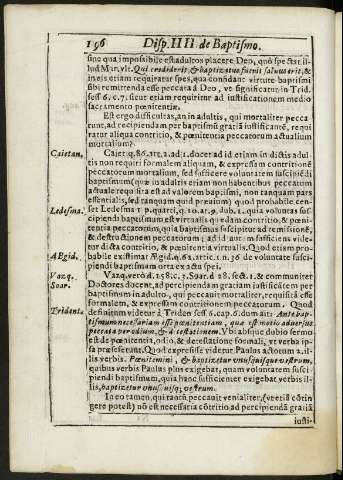 196 Disp. IIII de Baptismo.
sine qua impossibile est adultos placere Deo, quò spectat il-
lud Mar. vlt. Qui crediderit & baptizatus fuerit saluus erit, &
in eis etiam requiratur spes, qua confidant virtute baptismi
sibi remittenda esse peccata à Deo, vt significatur in Trid.
sess. 6. c. 7. sicut etiam requiritur ad iustificationem medio
sacramento pœnitentiæ.
Est ergo difficultas, an in adultis, qui mortaliter pecca
runt, ad recipiendam per baptismũ gratiã iustificantẽ, requi
ratur aliqua contritio, & pœnitentia peccatorum actualium
mortalium?
Caietan. Caiet. q. 86. art. 2. ad 1. docet ad id etiam in dictis adul
tis non requiri formalem aliquam, & expressam contritionẽ
peccatorum mortalium, sed sufficere voluntatem suscipiẽdi
baptismum (quæ in adultis etiam non habentibus peccatum
actuale requisita est ad valorem baptismi, non tanquam pars
essentialis, sed tanquam quid præuium) quod probabile cen-
Ledesma. set Ledesma 1 p. quarti, q. 10. ar. 9. dub. 2. quia voluntas sus
cipiendi baptismum est virtualis quædam contritio, & pœni
tentia peccatorum, quia baptismus suscipitur ad remissionẽ,
& destructionem peccatorum; ad id autem sufficiens vide-
tur dicta contritio, & pœnitentia virtualis. Quod etiam pro-
Ægid. babile existimat Ægid. q. 62. artic. 1. n. 36 de voluntate susci
piendi baptismum orta ex actu spei.
Vazq. Vazq. verò d. 158. c. 5. Soar. d. 28. sect. 2. & communiter
Soar. Doctores docent, ad percipiendam gratiam iustificantẽ per
baptismum in adulto, qui peccauit mortaliter, requisitã esse
formalem, & expressam contritionem peccatorum. Quod
Trident. definitum videtur à Triden sess 6. cap. 6. dum ait: Ante bap-
tismum necessariam esse pœnitentiam, quæ est motio aduersus
peccata per odium, & detestationem. Vbi absque dubio sermo
est de pœnitentia, odio, & detestatione formali, vt verba ip-
sa præseferunt. Quod expressisse videtur Paulus actorum 2. il-
lis verbis. Pœnitemini, & baptizetur vnusquisque vestrum,
quibus verbis Paulus plus exigebat, quam voluntatem susci
piendi baptismum, quia hanc sufficienter exigebat verbis il-
lis, baptizetur vnusquisq; vestrum.
In eo tamen, qui tantũ peccauit venialiter, (vt etiã cõtin
gere potest) nõ est necessaria cõtritio ad percipiendã gratiã
iusti-